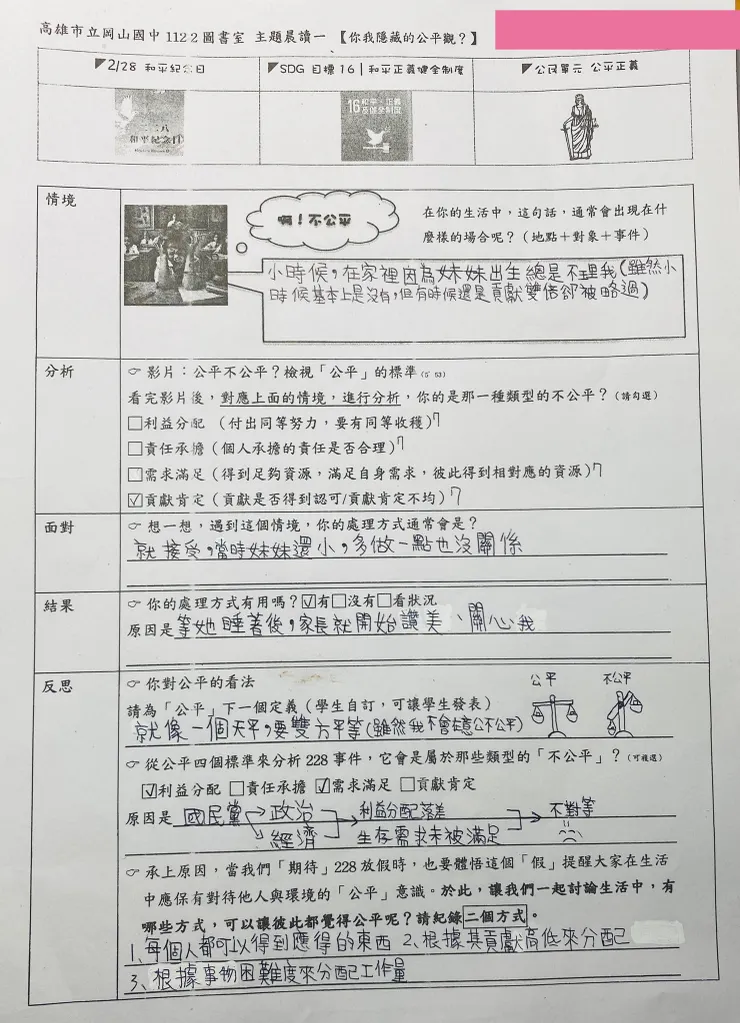 高雄市立岡山國中 112 2 圖書室 主題晨讀一 【你我隱藏的公平觀？】
◤2/28 和平紀念日
◤SDG 目標 16 | 和平正義健全制度
◤公民單元 公平正義
二二八
和平紀念日
16 和平、正義
及健全制度
情境
啊！不公平
在你的生活中，這句話，通常會出現在什
麼樣的場合呢？（地點＋對象＋事件）
小時候，在家裡因為妹妹出生總是不理我(雖然小
時候基本上是沒有，但有時候還是貢獻雙倍卻被略過)
分析
☞ 影片：公平不公平？檢視「公平」的標準（5' 53）
看完影片後，對應上面的情境，進行分析，你的是那一種類型的不公平？（請勾選）
□利益分配 （付出同等努力，要有同等收穫）
□責任承擔（個人承擔的責任是否合理）
□需求滿足（得到足夠資源，滿足自身需求，彼此得到相對應的資源）
☑貢獻肯定（貢獻是否得到認可/貢獻肯定不均）
面對
☞ 想一想，遇到這個情境，你的處理方式通常會是？
就接受，當時妹妹還小，多做一點也沒關係
結果
☞ 你的處理方式有用嗎？☑有□沒有□看狀況
原因是等她睡著後，家長就開始讚美、關心我
反思
☞ 你對公平的看法
公平 不公平
請為「公平」下一個定義（學生自訂，可讓學生發表）
就像一個天平，要雙方平等(雖然我不會在意公不公平)
☞ 從公平四個標準來分析 228 事件，它會是屬於那些類型的「不公平」？（可複選）
☑利益分配 □責任承擔 ☑需求滿足 □貢獻肯定
原因是 國民黨 政治 利益分配落差 不對等
經濟 生存需求未被滿足
☞ 承上原因，當我們「期待」228 放假時，也要體悟這個「假」提醒大家在生活
中應保有對待他人與環境的「公平」意識。於此，讓我們一起討論生活中，有
哪些方式，可以讓彼此都覺得公平呢？請紀錄二個方式。
1、每個人都可以得到應得的東西 2、根據其貢獻高低來分配
3、根據事物困難度來分配工作量